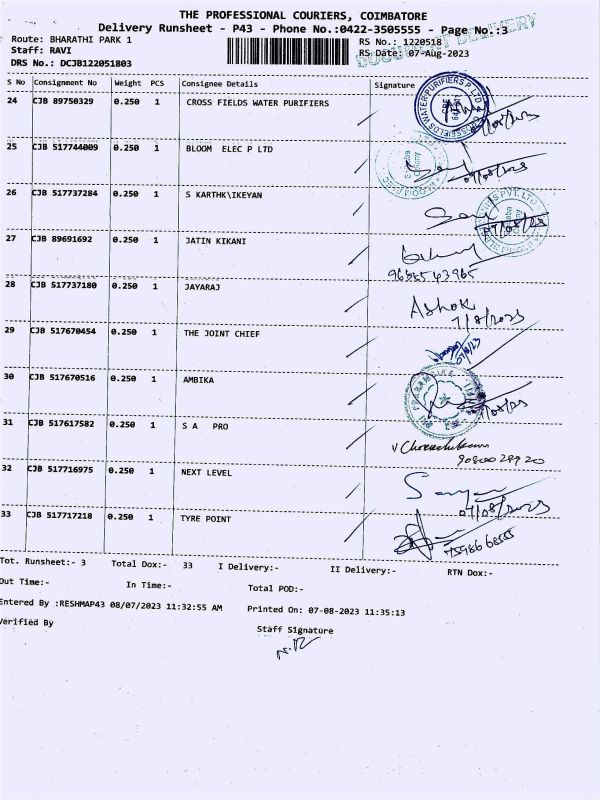 THE PROFESSIONAL COURIERS, COIMBATORE
Delivery Runsheet - P43 - Phone No.:0422-3505555 - Page No.:3
DOCUMENT DELIVERY
Route: BHARATHI PARK 1
RS No.: 1220518
Staff: RAVI
RS Date: 07-Aug-2023
DRS No.: DCJB122051803
S No Consignment No Weight PCS Consignee Details Signature
24 CJB 89750329 0.250 1 CROSS FIELDS WATER PURIFIERS
25 CJB 517744009 0.250 1 BLOOM ELEC P LTD
07/08/2023
26 CJB 517737284 0.250 1 S KARTHK\IKEYAN
07/08/23
27 CJB 89691692 0.250 1 JATIN KIKANI
9655543965
28 CJB 517737180 0.250 1 JAYARAJ
Ashok
7/8/2023
29 CJB 517670454 0.250 1 THE JOINT CHIEF
07/8/23
30 CJB 517670516 0.250 1 AMBIKA
31 CJB 517617582 0.250 1 S A PRO
9080028920
32 CJB 517716975 0.250 1 NEXT LEVEL
07/08/2023
33 CJB 517717218 0.250 1 TYRE POINT
Tot. Runsheet:- 3 Total Dox:- 33 I Delivery:- II Delivery:- RTN Dox:-
Out Time:- In Time:- Total POD:-
Entered By :RESHMAP43 08/07/2023 11:32:55 AM Printed On: 07-08-2023 11:35:13
Verified By Staff Signature